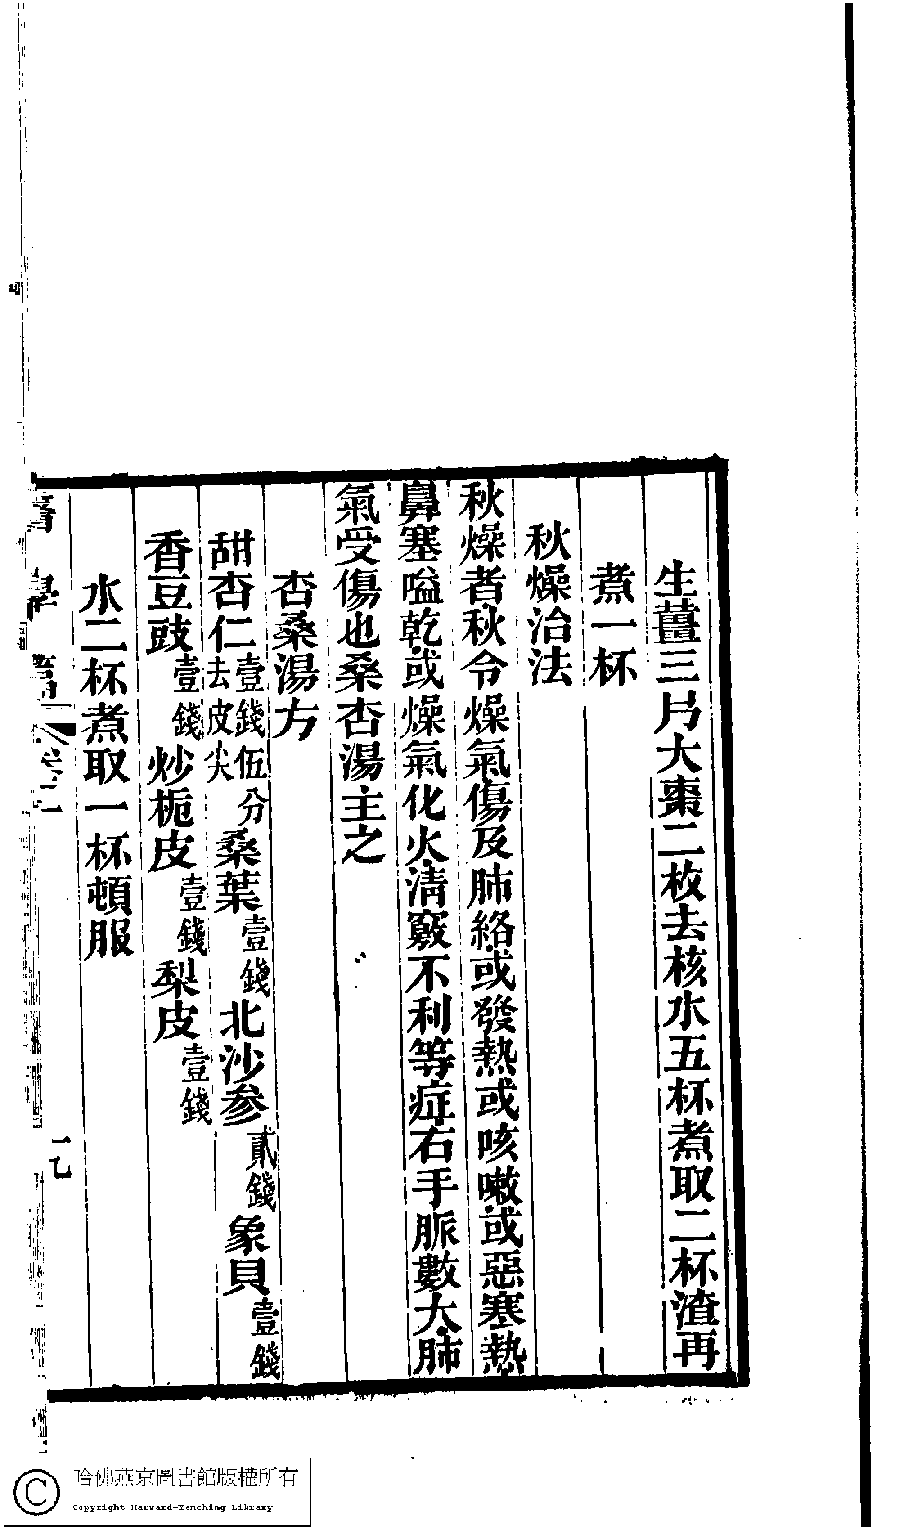 生薑三片大棗二枚去核水五杯煮取二杯渣再
煮一杯
秋燥治法
秋燥者秋令燥氣傷及肺絡或發熱或咳嗽或惡寒熱
鼻塞嗌乾或燥氣化火清竅不利等症右手脈數大肺
氣受傷也桑杏湯主之
杏桑湯方
甜杏仁壹錢伍分去皮尖桑葉壹錢北沙参貳錢象貝壹錢
香豆豉壹錢炒栀皮壹錢梨皮壹錢
水二杯煮取一杯頓服
卷二
哈佛燕京圖書館版權所有
Copyright Harvard-Yenching Library